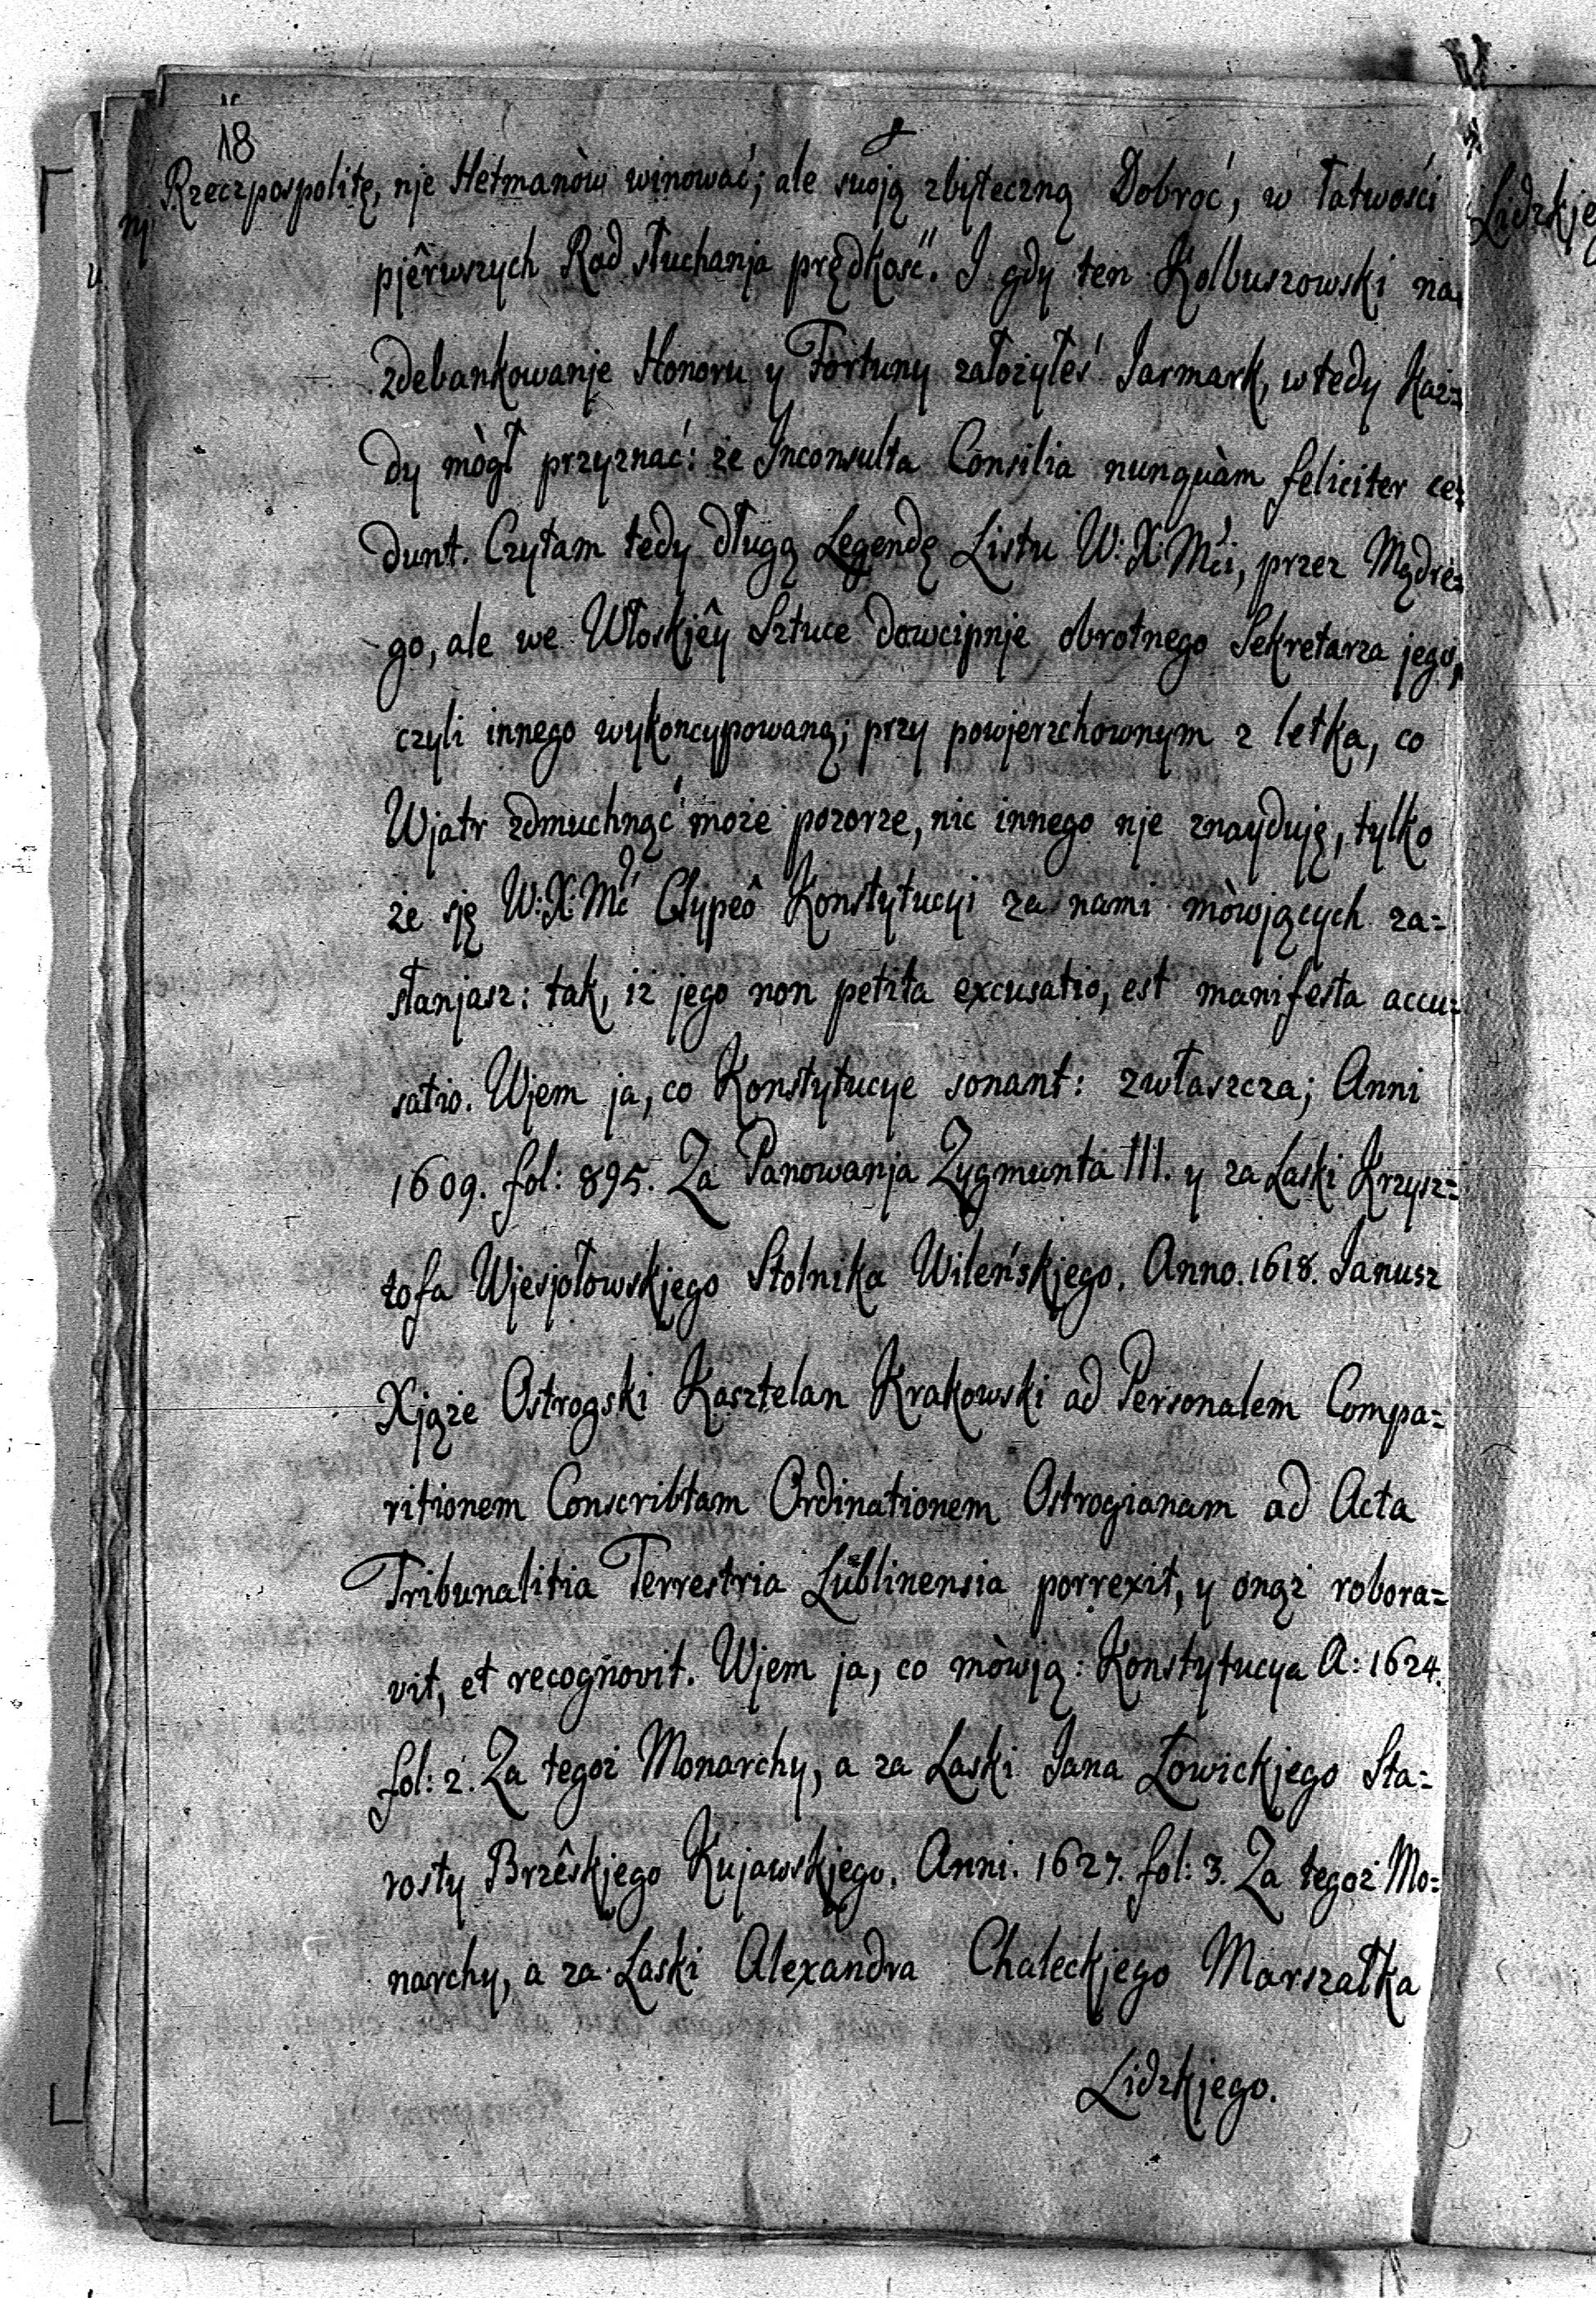 18
Rzeczpospolitę, nje Hetmanòw winować; ale swoją zbyteczną Dobroć, w łatwości
pjêrwszych Rad słuchanja prędkość". I gdy ten Kolbuszowski na
zdebankowanje Honoru y Fortuny założyłeś Jarmark, wtedy Każ=
dy mògł przyznać: że Inconsulta Consilia nunquàm feliciter ce=
dunt. Czytam tedy długą Legendę Listu W: X: Mći, przez Mądre=
go, ale we Włoskjêy Sztuce dowcipnje obrotnego Sekretarza jego,
czyli innego wykoncypowaną; przy powjerzchownym z letka, co
Wjatr zdmuchnąć może pozorze, nic innego nje znayduję, tylko
że sję W: X: Mć Clypeô Konstytucyi za nami mòwjących za=
słanjasz: tak, iż jego non petita excusatio, est manifesta accu=
satio. Wjem ja, co Konstytucye sonant: zwłaszcza; Anni
1609. fol: 895. Za Panowanja Zygmunta III. y za Laski Krzysz=
tofa Wjesjołowskjego Stolnika Wileńskjego. Anno. 1618. Janusz
Xjąże Ostrogski Kasztelan Krakowski ad Personalem Compa=
ritionem Conscribtam Ordinationem Ostrogianam ad Acta
Tribunalitia Terrestria Lublinensia porrexit, y onąż robora=
vit, et recognovit. Wjem ja, co mòwją: Konstytucya A: 1624.
fol: 2. Za tegoż Monarchy, a za Laski Jana Łowickjego Sta=
rosty Brzêskjego Kujawskjego. Anni. 1627. fol: 3. Za tegoż Mo=
narchy, a za Laski Alexandra Chaleckjego Marszałka
Lidzkjego.